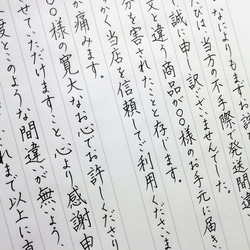 なによりもまず
は、当方の不手際で発送間違
誠に申し訳ございませんでした。
文と違う商品が〇〇様のお手元に届き、
分を害されたことと存じます。
かく当店を信頼してご利用くださ
が痛みます。
〇〇様の寛大なお心でお許しくださり
せていただけますこと、心より感謝申
度とこのような間違いが無いよう、
れまで以上に